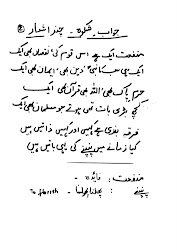 جواب۔ شکوہ۔ چند اشعار
منفعت ایک ہے اس قوم کی، نقصان بھی ایک
ایک ہی سب کا نبی، دین بھی، ایمان بھی ایک
حرم پاک بھی، اللہ بھی، قرآن بھی ایک
کچھ بڑی بات تھی ہوتے جو مسلمان بھی ایک
فرقہ بندی ہے کہیں اور کہیں ذاتیں ہیں
کیا زمانے میں پنپنے کی یہی باتیں ہیں
منفعت : فائدہ
پنپنے : پھلنا پھولنا - To flourish